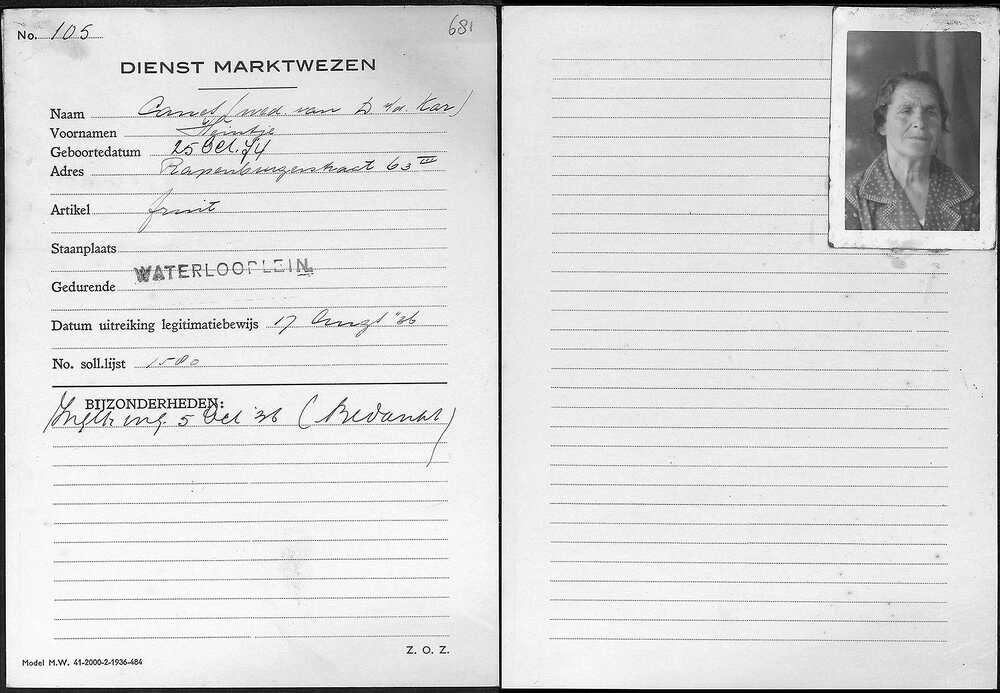 No. 105
681
DIENST MARKTWEZEN
Naam Canes (wed. van D v/d. Kar)
Voornamen Heintje
Geboortedatum 25 Oct. 74
Adres Rapenburgerstraat 63 III
Artikel fruit
Staanplaats
WATERLOOPLEIN.
Gedurende
Datum uitreiking legitimatiebewijs 17 Aug '36
No. soll.lijst 1580
BIJZONDERHEDEN:
5 Oct '36 (Bedankt)
Z. O. Z.
Model M.W. 41-2000-2-1936-484